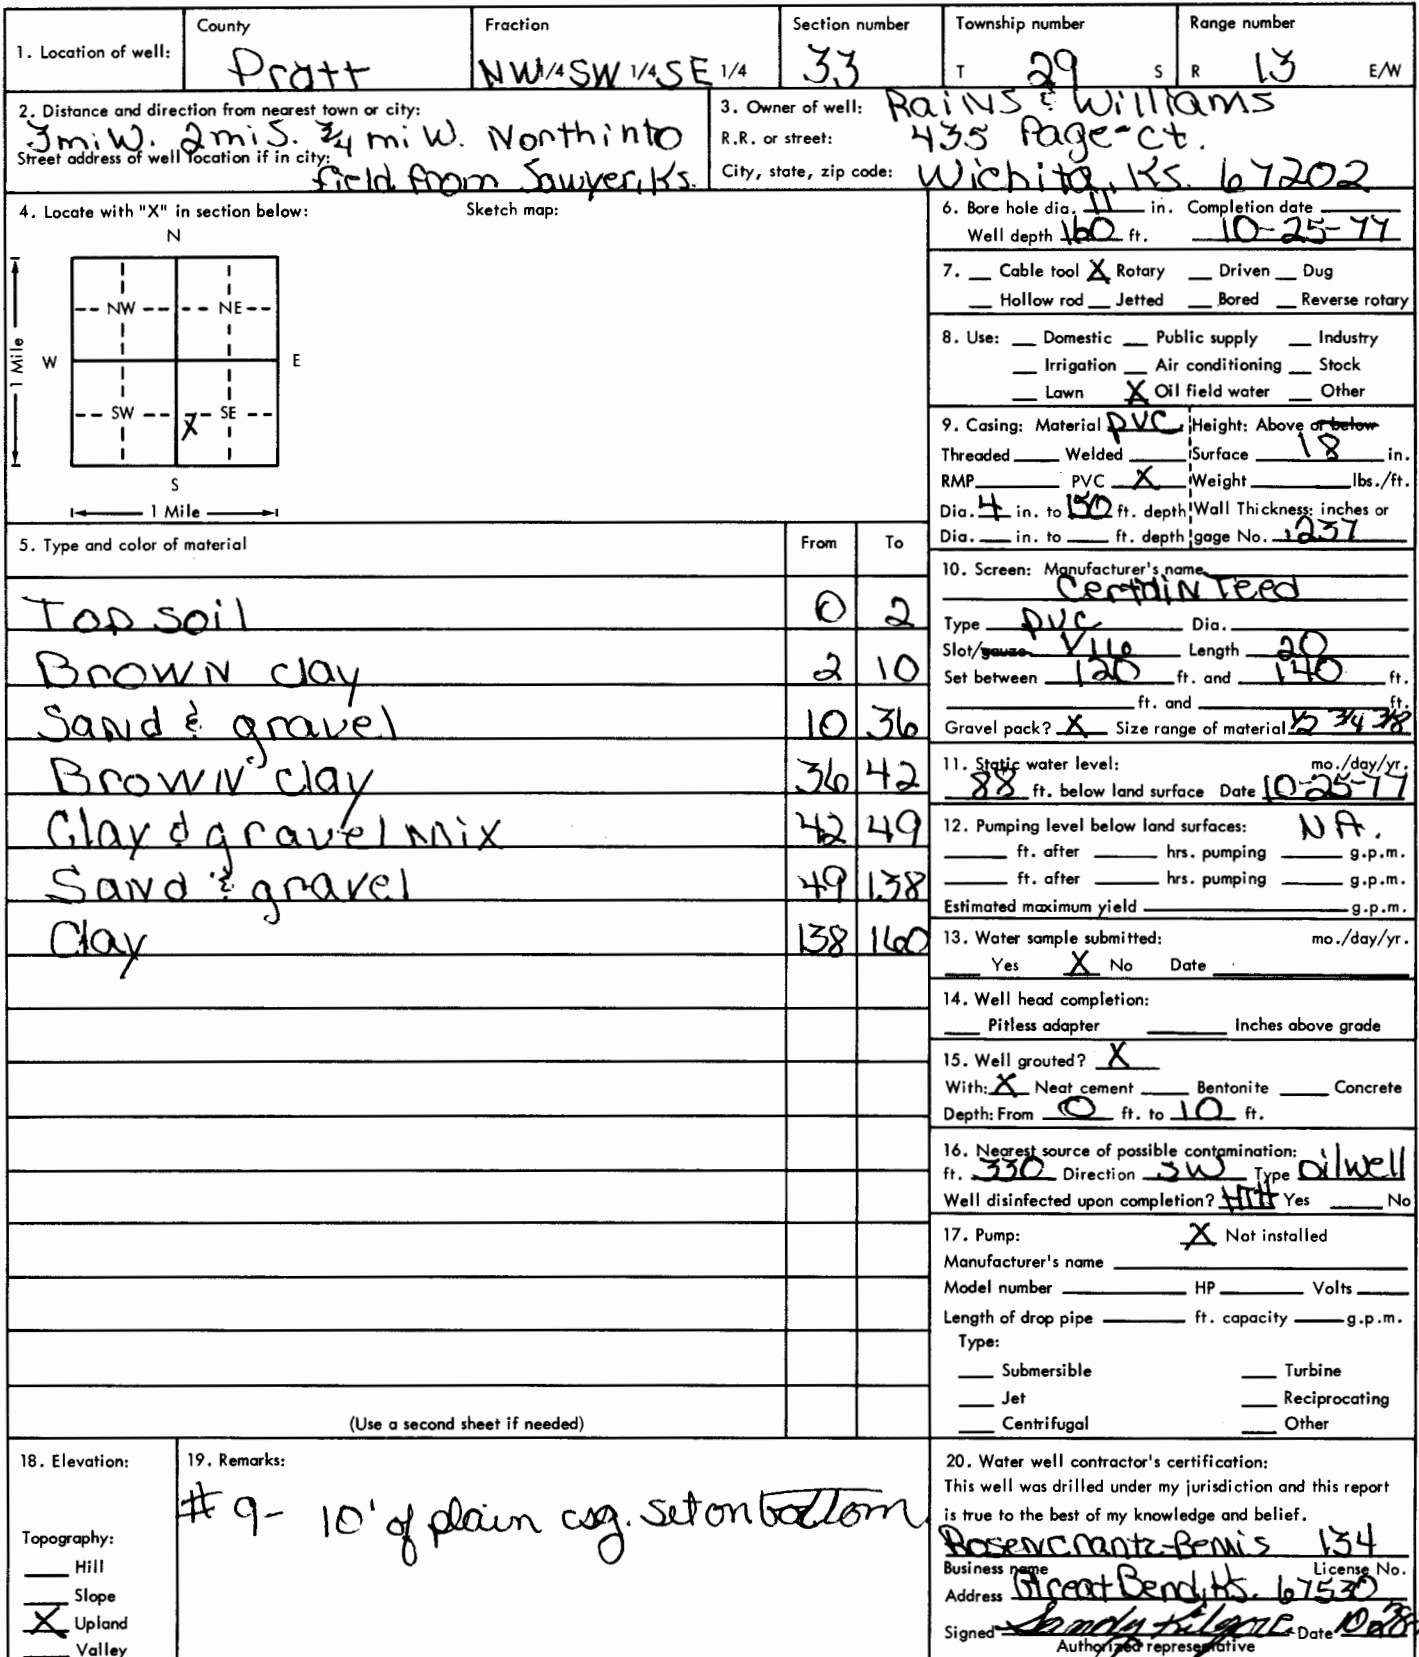 1. Location of well: County Pratt Fraction NW 1/4 SW 1/4 SE 1/4 Section number 33 Township number T 29 S Range number R 13 E/W
2. Distance and direction from nearest town or city:
3mi W. 2mi S. 3/4 mi W. North into
Street address of well location if in city:
field from Sawyer, Ks.
3. Owner of well: Rains & Williams
R.R. or street: 435 Page-Ct.
City, state, zip code: Wichita, Ks. 67202
4. Locate with "X" in section below: Sketch map:
N
NW NE
W E
1 Mile
SW X SE
S
1 Mile
5. Type and color of material From To
Top soil 0 2
Brown clay 2 10
Sand & gravel 10 36
Brown clay 36 42
Clay & gravel mix 42 49
Sand & gravel 49 138
Clay 138 160
(Use a second sheet if needed)
6. Bore hole dia. 11 in. Completion date
Well depth 160 ft. 10-25-77
7. Cable tool X Rotary Driven Dug
Hollow rod Jetted Bored Reverse rotary
8. Use: Domestic Public supply Industry
Irrigation Air conditioning Stock
Lawn X Oil field water Other
9. Casing: Material PVC Height: Above or below
Threaded Welded Surface 18 in.
RMP PVC X Weight lbs./ft.
Dia. 4 in. to 150 ft. depth Wall Thickness: inches or
Dia. in. to ft. depth gage No. .237
10. Screen: Manufacturer's name
CertainTeed
Type PVC Dia.
Slot/gauze 1/16 Length 20
Set between 120 ft. and 140 ft.
ft. and ft.
Gravel pack? X Size range of material 1/2 3/4 3/8
11. Static water level: mo./day/yr.
88 ft. below land surface Date 10-25-77
12. Pumping level below land surfaces: NA.
ft. after hrs. pumping g.p.m.
ft. after hrs. pumping g.p.m.
Estimated maximum yield g.p.m.
13. Water sample submitted: mo./day/yr.
Yes X No Date
14. Well head completion:
Pitless adapter Inches above grade
15. Well grouted? X
With: X Neat cement Bentonite Concrete
Depth: From 0 ft. to 10 ft.
16. Nearest source of possible contamination:
ft. 330 Direction SW Type oil well
Well disinfected upon completion? HTH Yes No
17. Pump: X Not installed
Manufacturer's name
Model number HP Volts
Length of drop pipe ft. capacity g.p.m.
Type:
Submersible Turbine
Jet Reciprocating
Centrifugal Other
18. Elevation:
Topography:
Hill
Slope
X Upland
Valley
19. Remarks:
#9- 10' of plain csg. set on bottom.
20. Water well contractor's certification:
This well was drilled under my jurisdiction and this report
is true to the best of my knowledge and belief.
Rosencrantz-Bemis 134
Business name License No.
Address Great Bend, Ks. 67530
Signed Sandy Kilgore Date
Authorized representative